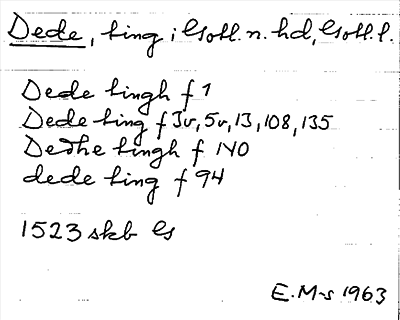 Dede, ting ; Gotl. n. hd, Gotl. l.
Dede tingh f 1
Dede ting f 3v, 5v, 13, 108, 135
Dedhe tingh f 140
dede ting f 94
1523 skb G
E. M-s 1963